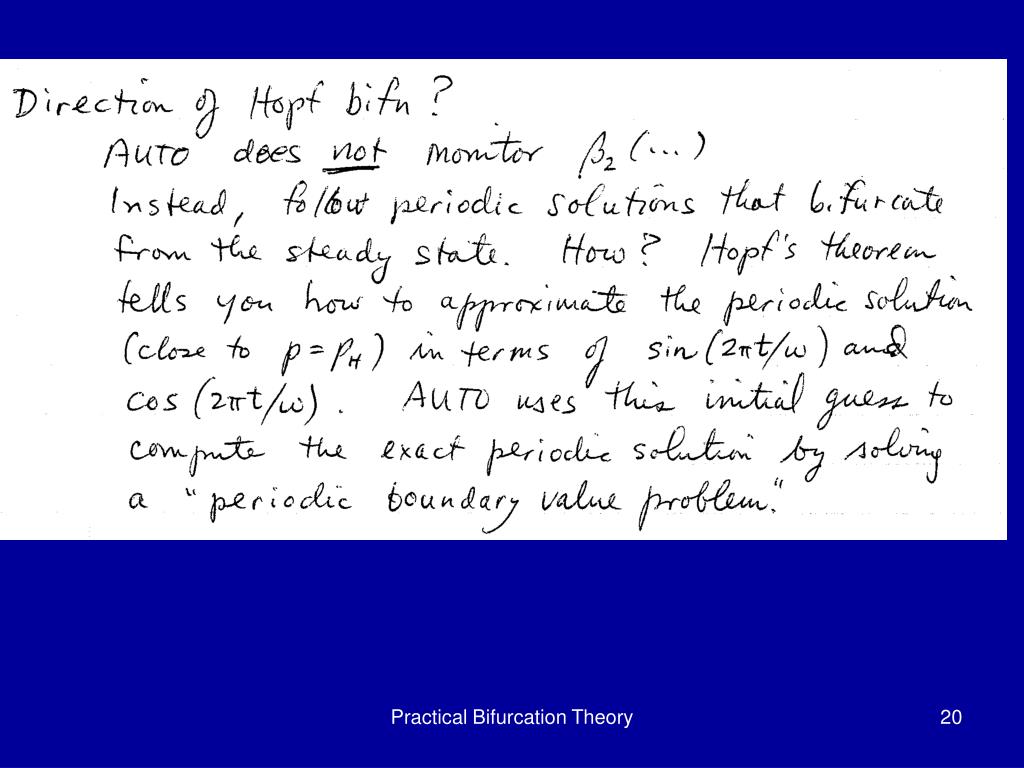 Direction of Hopf bifn?
AUTO does not monitor β₂(...)
Instead, follow periodic solutions that bifurcate
from the steady state. How? Hopf's theorem
tells you how to approximate the periodic solution
(close to p = pH) in terms of sin(2πt/ω) and
cos(2πt/ω). AUTO uses this initial guess to
compute the exact periodic solution by solving
a "periodic boundary value problem."
Practical Bifurcation Theory
20